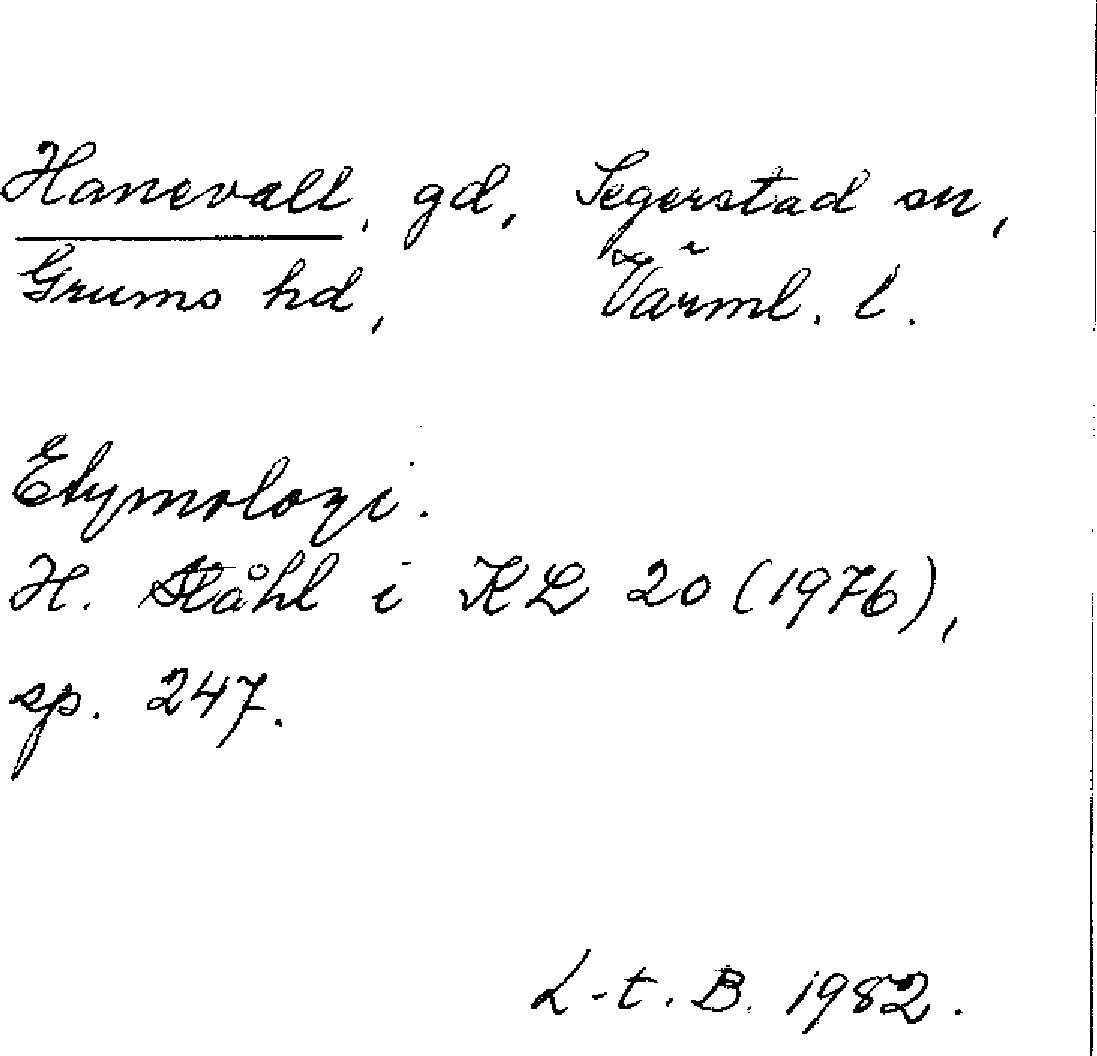 Hanevall, gd, Segerstad sn,
Grums hd, Värml. l.
Etymologi.
H. Ståhl i KL 20 (1976),
sp. 247.
L-t. B. 1982.